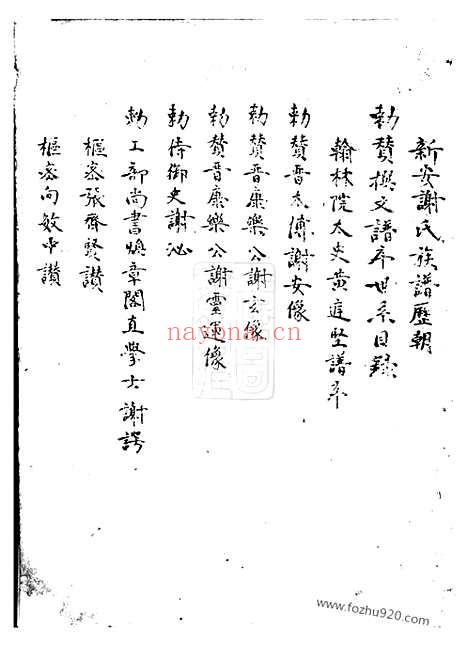 新安謝氏族譜歷朝
勅贊撰文譜序世系目錄
翰林院太史黃庭堅譜序
勅贊晉太傅謝安像
勅贊晉康樂公謝玄像
勅贊晉康樂公謝靈運像
勅侍御史謝泌
勅工部尚書煥章閣直學士謝諤
樞密張齊賢讚
樞密向敏中讚
nayona.cn
www.fozhu920.com